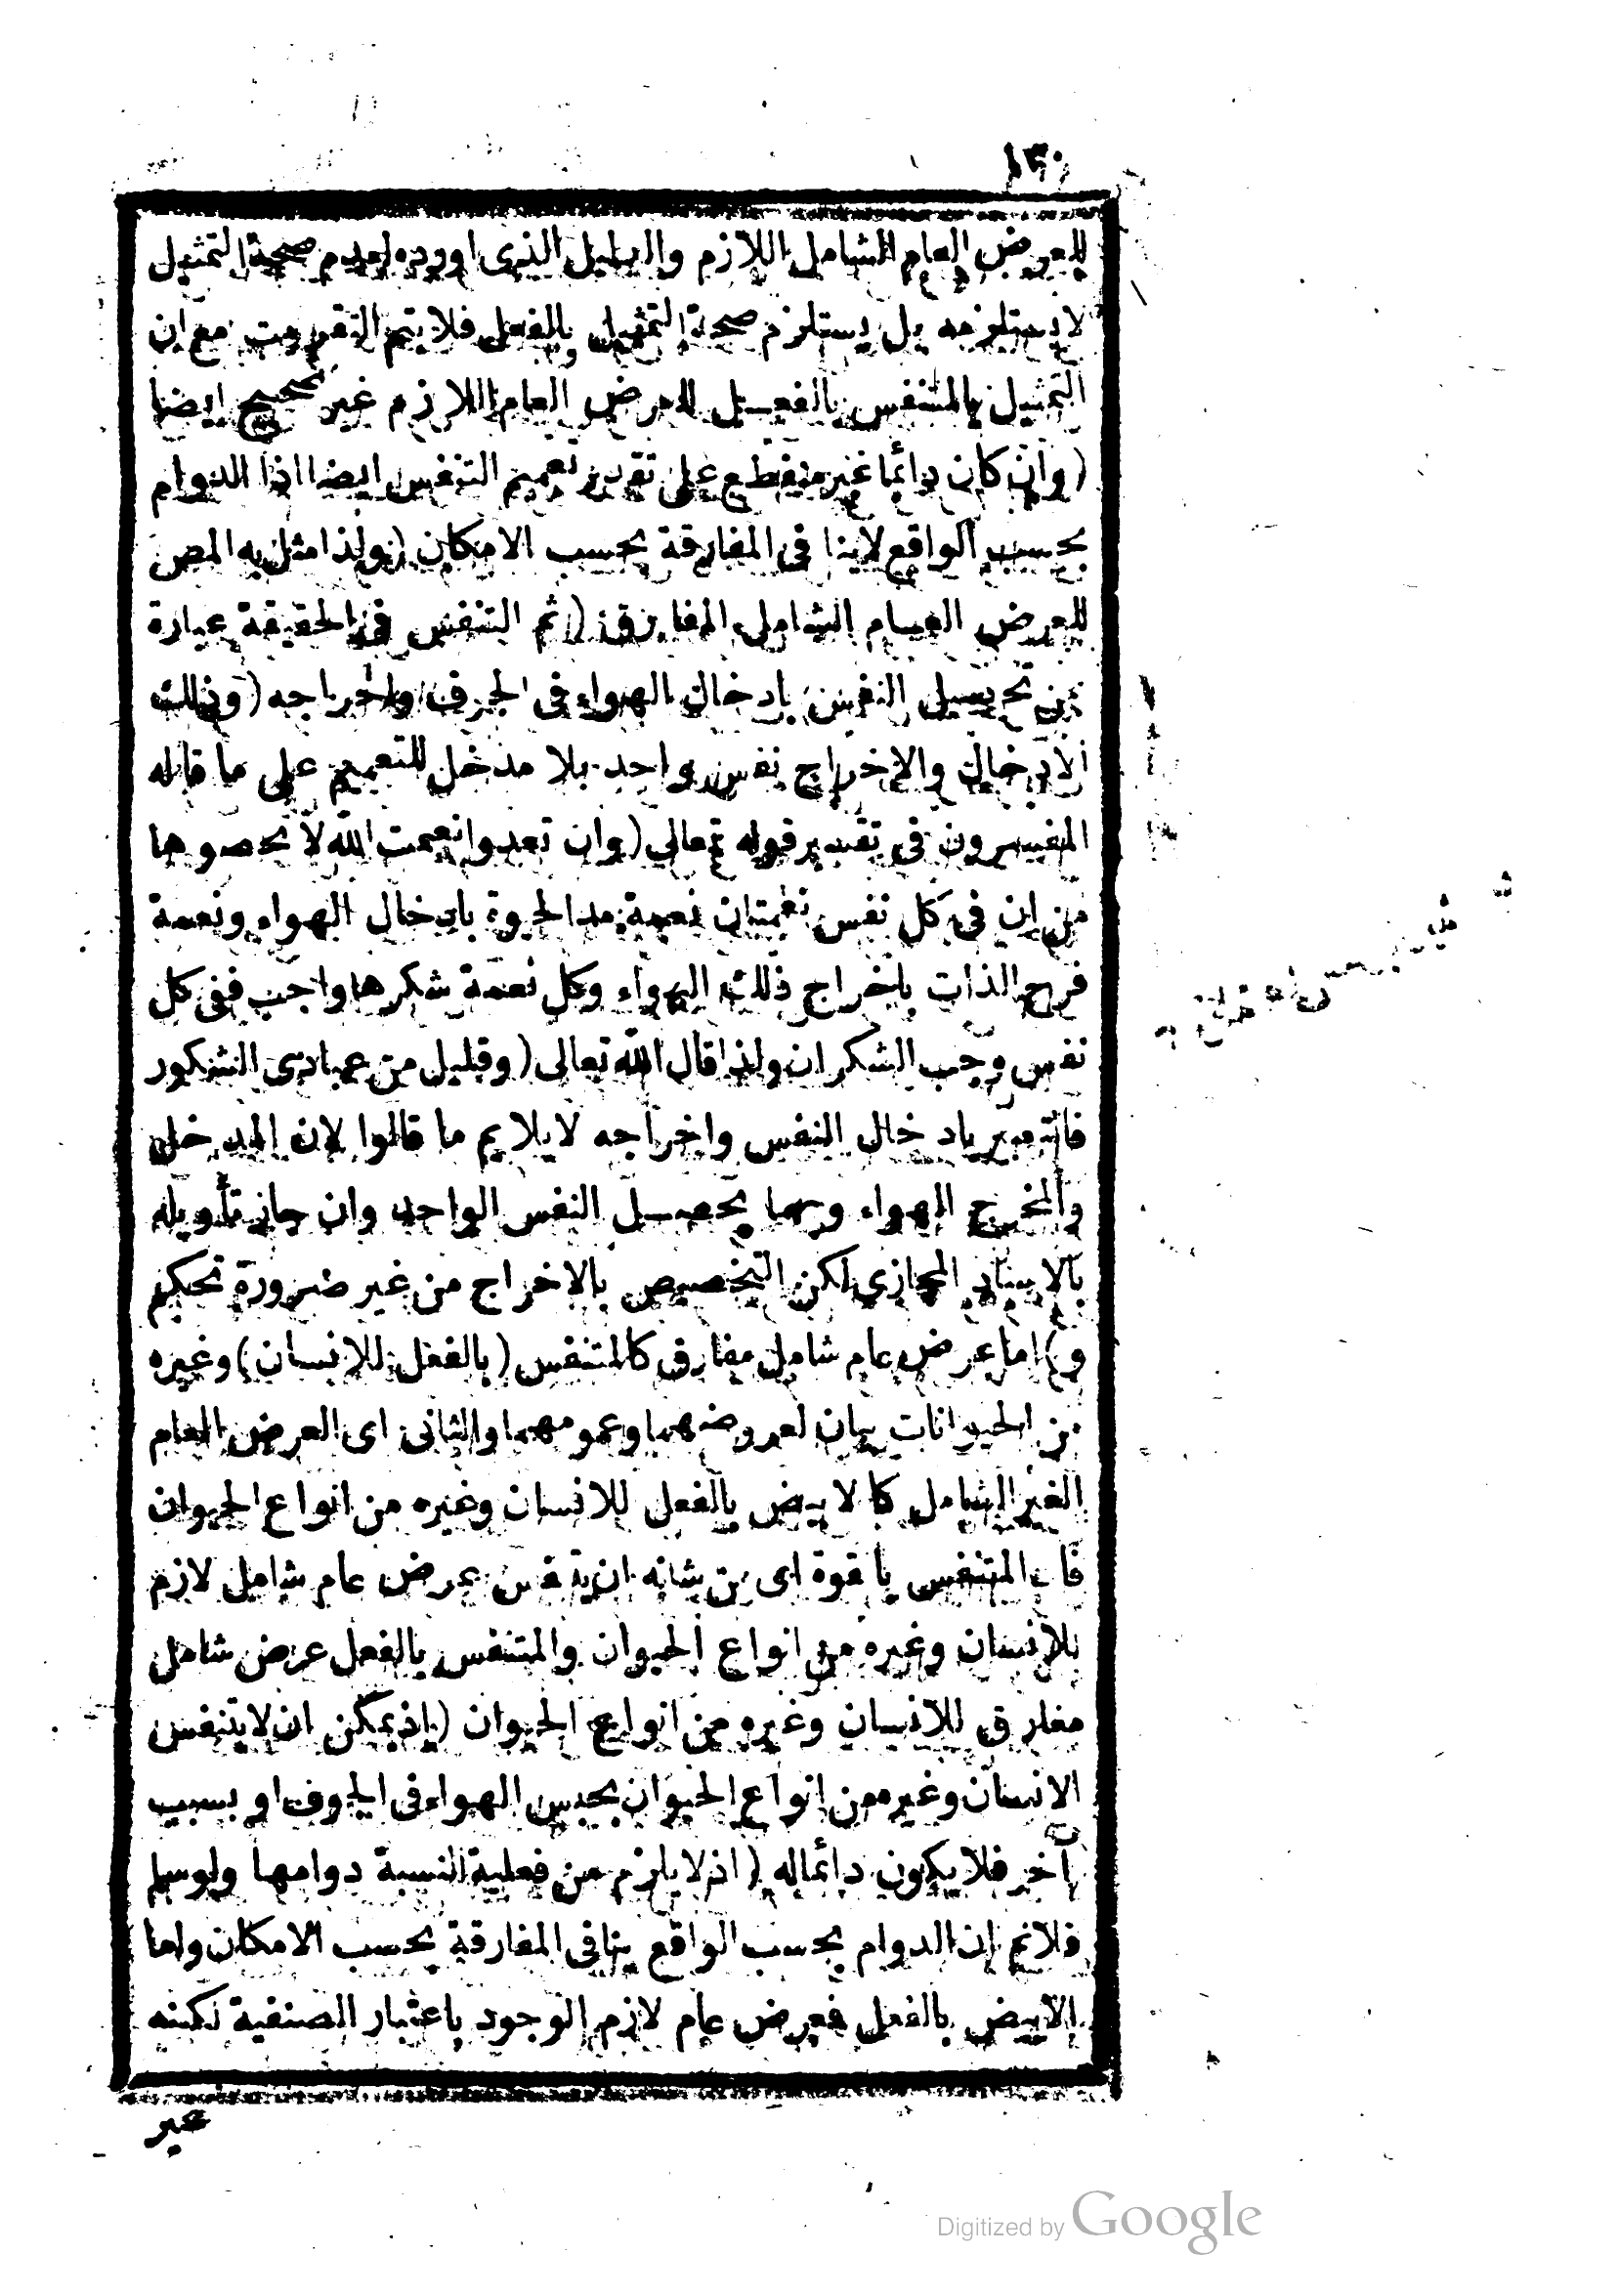 ١٣٠
للعرض العام الشامل اللازم والدليل الذى اورده لعدم صحة التمثيل
لايستلزمه بل يستلزم صحة التمثيل بالفعل فلا يتم التقريب مع ان
التمثيل بالمتنفس بالفعـل للعرض العام اللازم غير صحيح ايضا
(وان كان دائما غير منقطع على تقدير تعميم التنفس ايضا اذا الدوام
بحسب الواقع لاينا فى المفارقة بحسب الامكان (ولذا مثل به المص
للعرض العـام الشامل المفارق (ثم التنفس فى الحقيقة عبارة
عن تحصيل النفس بادخال الهواء فى الجوف واخراجه (وذلك
الادخال والاخراج نفس واحد بلا مدخل للتعميم على ما قاله
المفسرون فى تفسير قوله تعالى (وان تعدوا نعمت الله لا تحصوها
من ان فى كل نفس نعمتان نعمة مد الحيوة بادخال الهواء ونعمة
فرح الذات باخراج ذلك الهواء وكل نعمة شكرها واجب ففى كل
نفس وجب الشكران ولذا قال الله تعالى (وقليل من عبادى الشكور
فالتعبير بادخال النفس واخراجه لايلايم ما قالوا لان المدخل
والمخرج الهواء وبهما يحصـل النفس الواحد وان جاز تأويله
بالاسناد المجازى لكن التخصيص بالاخراج من غير ضرورة تحكم
و) اما عرض عام شامل مفارق كالمتنفس (بالفعل للانسان) وغيره
من الحيوانات بيان لعروضهما وعمومهما والثانى اى العرض العام
الغير الشامل كالابيض بالفعل للانسان وغيره من انواع الحيوان
فان المتنفس بالقوة اى من شانه ان يتنفس عرض عام شامل لازم
للانسان وغيره من انواع الحيوان والمتنفس بالفعل عرض شامل
مفارق للانسان وغيره من انواع الحيوان (اذ يمكن ان لا يتنفس
الانسان وغيره من انواع الحيوان بحبس الهواء فى الجوف او بسبب
آخر فلا يكون دائما له (اذ لا يلزم من فعلية النسبة دوامها ولو سلم
فلانم ان الدوام بحسب الواقع ينافى المفارقة بحسب الامكان واما
الابيض بالفعل فعرض عام لازم الوجود باعتبار الصنفية لكنه
غير
Digitized by Google